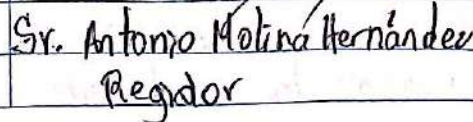 Sr. Antonio Moliná Hernández
Regidor